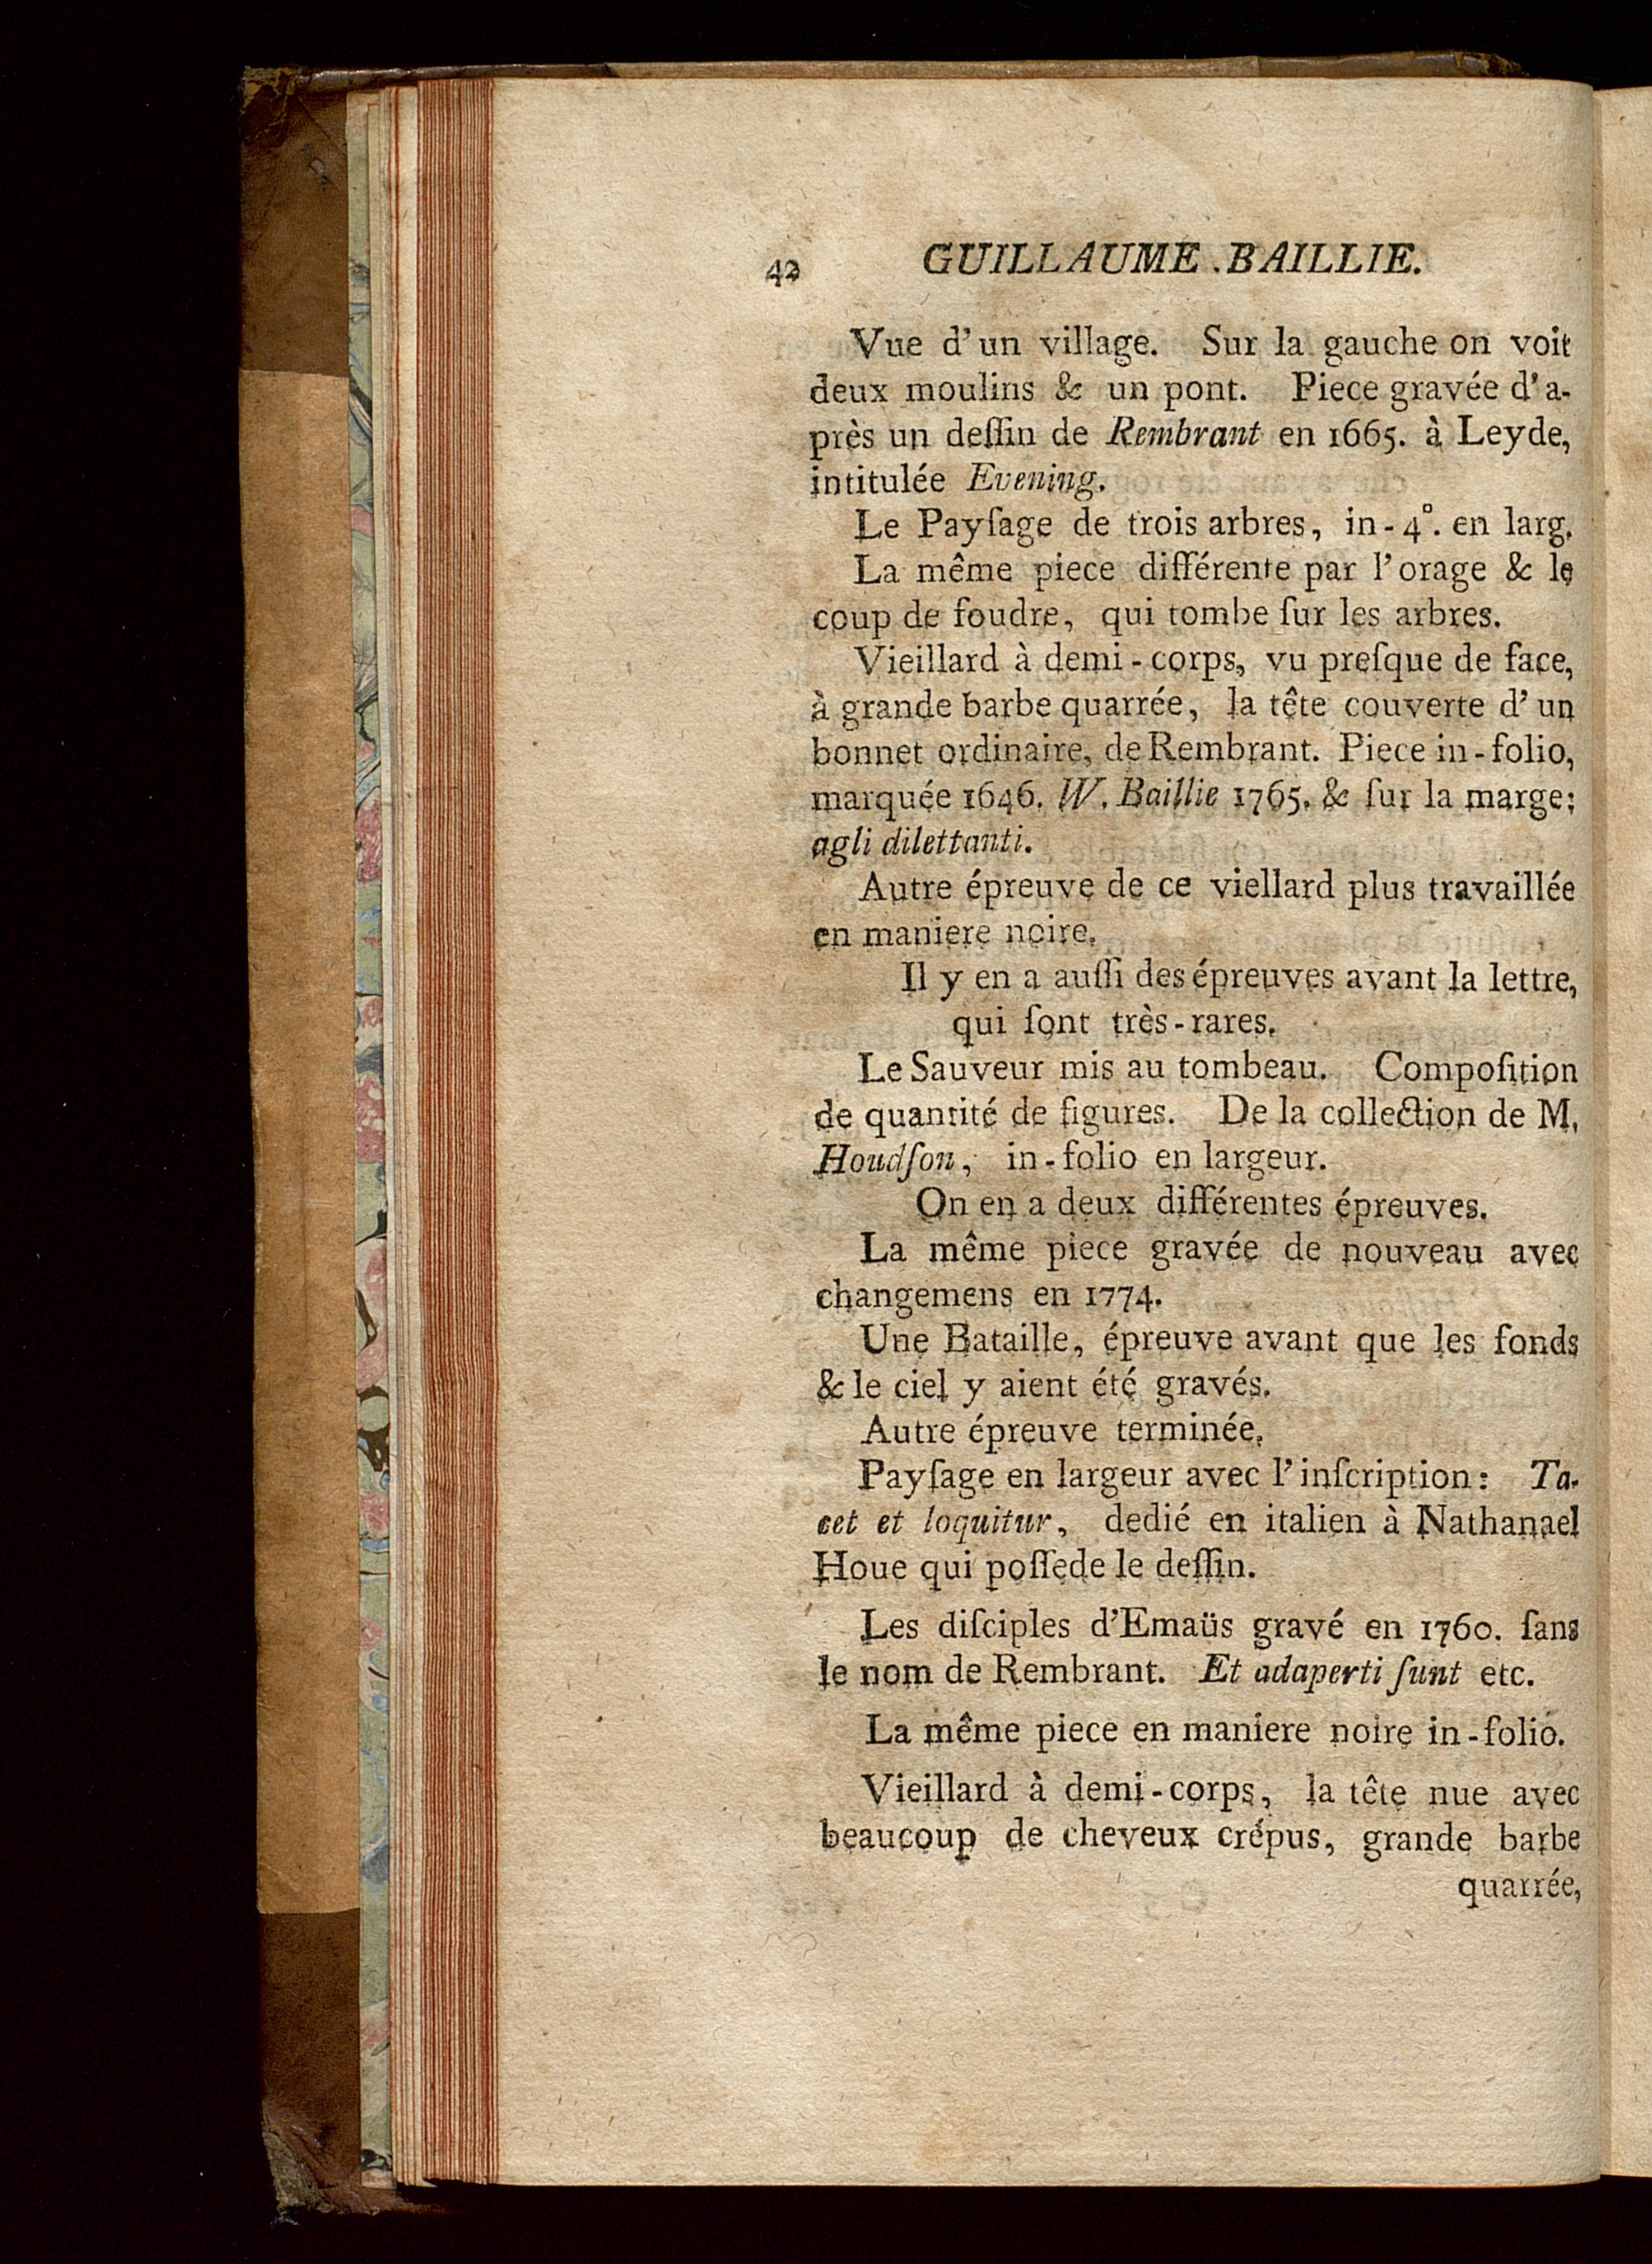 42 GUILLAUME BAILLIE.
Vue d'un village. Sur la gauche on voit
deux moulins & un pont. Piece gravée d'a-
près un deſſin de Rembrant en 1665. à Leyde,
intitulée Evening.
Le Payſage de trois arbres, in-4°. en larg.
La même piece différente par l'orage & le
coup de foudre, qui tombe ſur les arbres.
Vieillard à demi-corps, vu preſque de face,
à grande barbe quarrée, la tête couverte d'un
bonnet ordinaire, de Rembrant. Piece in-folio,
marquée 1646. W. Baillie 1765. & ſur la marge:
agli dilettanti.
Autre épreuve de ce viellard plus travaillée
en maniere noire.
Il y en a auſſi des épreuves avant la lettre,
qui ſont très-rares.
Le Sauveur mis au tombeau. Compoſition
de quantité de figures. De la collection de M.
Houdſon, in-folio en largeur.
On en a deux différentes épreuves.
La même piece gravée de nouveau avec
changemens en 1774.
Une Bataille, épreuve avant que les fonds
& le ciel y aient été gravés.
Autre épreuve terminée.
Payſage en largeur avec l'inſcription: Ta-
cet et loquitur, dedié en italien à Nathanael
Houe qui poſſede le deſſin.
Les diſciples d'Emaüs gravé en 1760. ſans
le nom de Rembrant. Et adaperti ſunt etc.
La même piece en maniere noire in-folio.
Vieillard à demi-corps, la tête nue avec
beaucoup de cheveux crépus, grande barbe
quarrée,